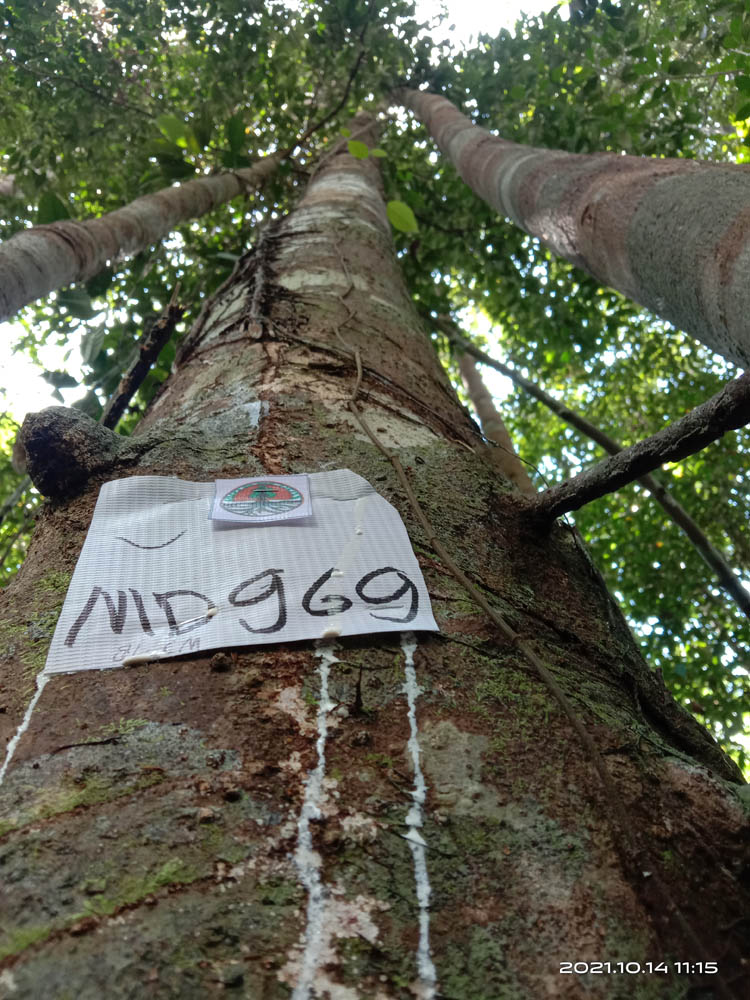 MD969
2021.10.14 11:15